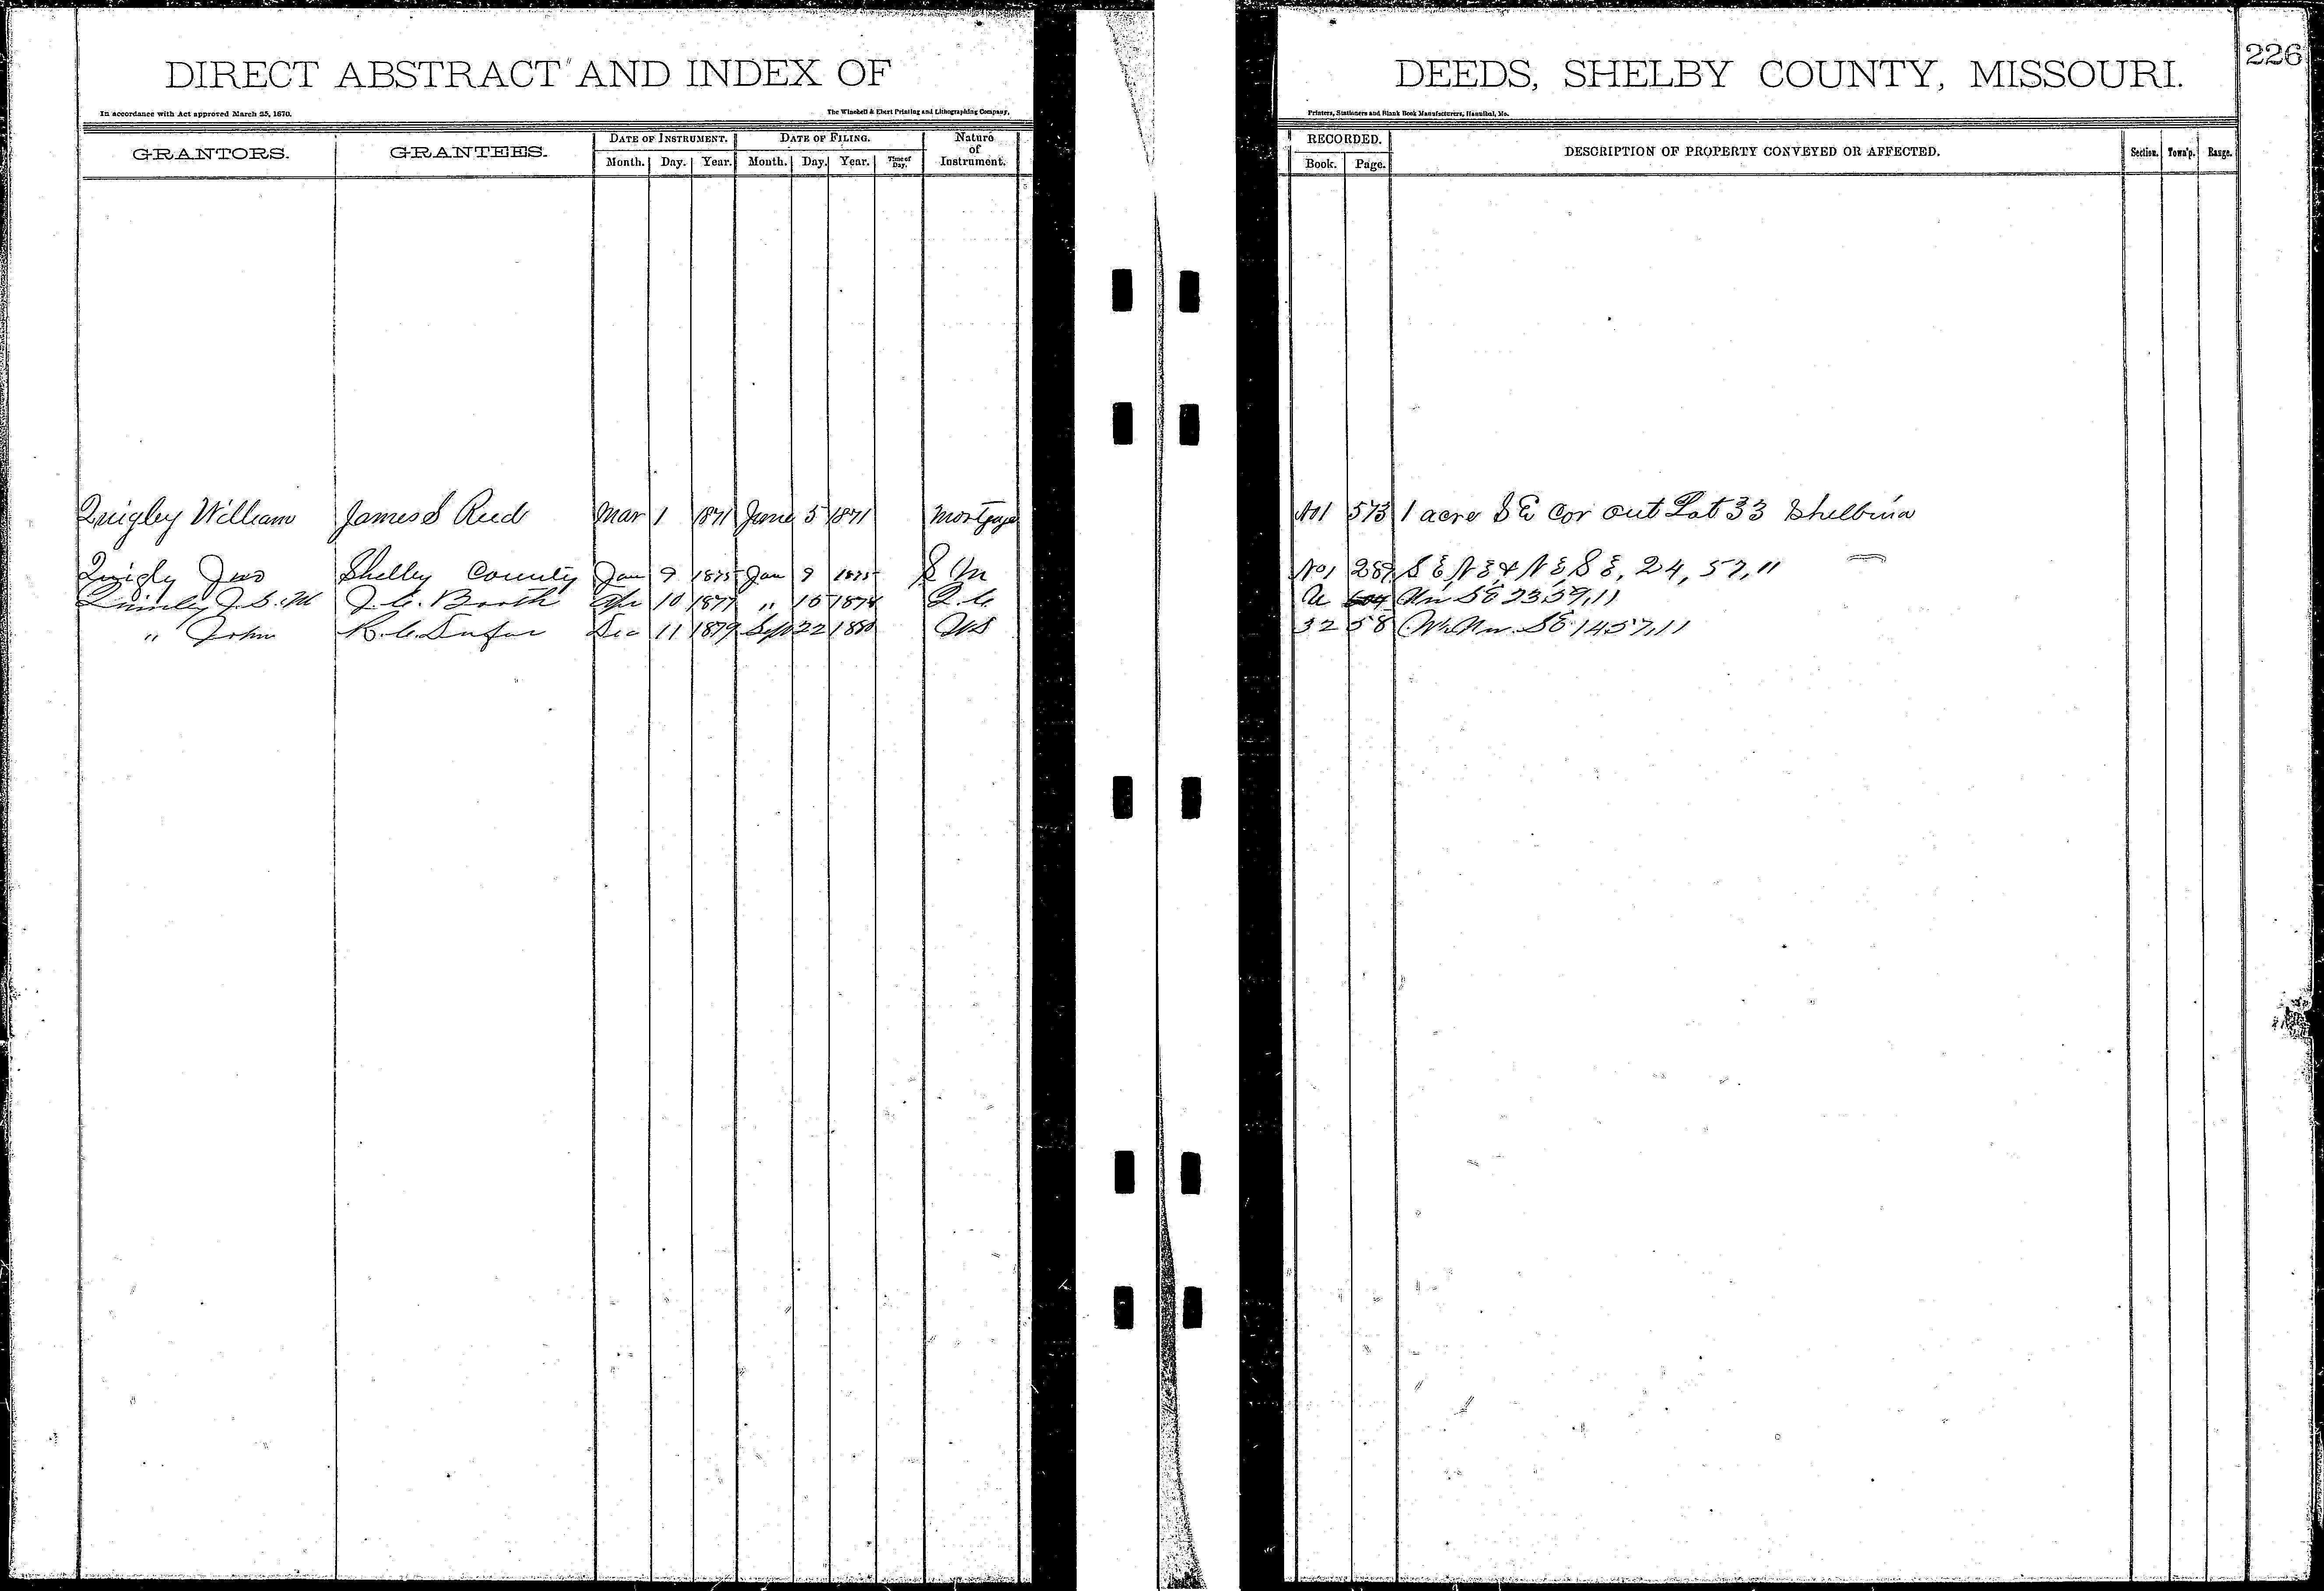 DIRECT ABSTRACT AND INDEX OF DEEDS, SHELBY COUNTY, MISSOURI. 226
In accordance with Act approved March 25, 1870. The Winchell & Ebert Printing and Lithographing Company, Printers, Stationers and Blank Book Manufacturers, Hannibal, Mo.
GRANTORS. GRANTEES. DATE OF INSTRUMENT. DATE OF FILING. Nature of Instrument. RECORDED. DESCRIPTION OF PROPERTY CONVEYED OR AFFECTED. Section. Town'p. Range.
Month. Day. Year. Month. Day. Year. Time of Day. Book. Page.
Quigley William James S Reed Mar 1 1871 June 5 1871 Mortgage No1 573 1 acre S E Cor out Lot 33 Shelbina
Quigly Jno Shelby County Jan 9 1875 Jan 9 1875 S M No1 289 S E, N E, & N E, S E, 24, 57, 11
J. C. Booth Apr 10 1877 " 10 1878 Q. C. SE 23 59, 11
" John R. C. Dec 11 1879 Sept 22 1880 WD 32 58 SE 14 57, 11